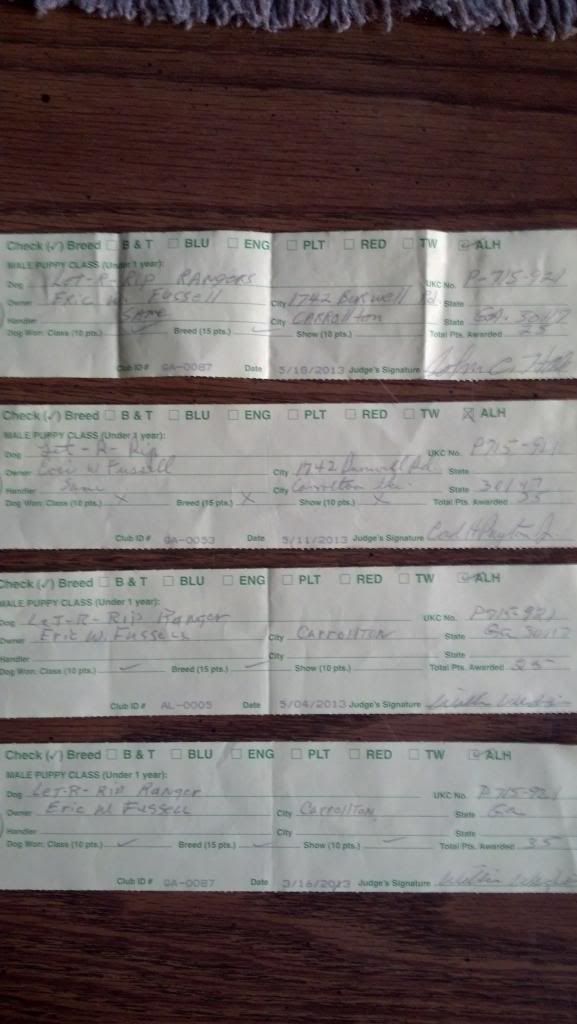 Check (✓) Breed ☐ B & T ☐ BLU ☐ ENG ☐ PLT ☐ RED ☐ TW ☑ ALH
MALE PUPPY CLASS (Under 1 year):
Dog LET-R-RIP RANGERS UKC No. P-715-921
Owner ERIC W. FUSSELL City 1742 Rd. State
Handler SAME City CARROLLTON State GA. 30117
Dog Won: Class (10 pts.) ✓ Breed (15 pts.) ✓ Show (10 pts.) Total Pts. Awarded 25
Club ID # GA-0087 Date 5/18/2013 Judge's Signature
Check (✓) Breed ☐ B & T ☐ BLU ☐ ENG ☐ PLT ☐ RED ☐ TW ☒ ALH
MALE PUPPY CLASS (Under 1 year):
Dog Let-R-Rip UKC No. P715-921
Owner Eric W Fussell City 1742 Rd. State
Handler Same City State
Dog Won: Class (10 pts.) X Breed (15 pts.) X Show (10 pts.) X Total Pts. Awarded 35
Club ID # GA-0053 Date 5/11/2013 Judge's Signature
Check (✓) Breed ☐ B & T ☐ BLU ☐ ENG ☐ PLT ☐ RED ☐ TW ☑ ALH
MALE PUPPY CLASS (Under 1 year):
Dog LET-R-RIP Ranger UKC No. P715-921
Owner Eric W. Fussell City CARROLLTON State Ga 30117
Handler City State
Dog Won: Class (10 pts.) ✓ Breed (15 pts.) ✓ Show (10 pts.) Total Pts. Awarded 25
Club ID # AL-0005 Date 5/04/2013 Judge's Signature
Check (✓) Breed ☐ B & T ☐ BLU ☐ ENG ☐ PLT ☐ RED ☐ TW ☑ ALH
MALE PUPPY CLASS (Under 1 year):
Dog LET-R-RIP Ranger UKC No. P715-921
Owner Eric W Fussell City Carrollton State Ga
Handler City State
Dog Won: Class (10 pts.) ✓ Breed (15 pts.) ✓ Show (10 pts.) ✓ Total Pts. Awarded 35
Club ID # GA-0087 Date 3/16/2013 Judge's Signature